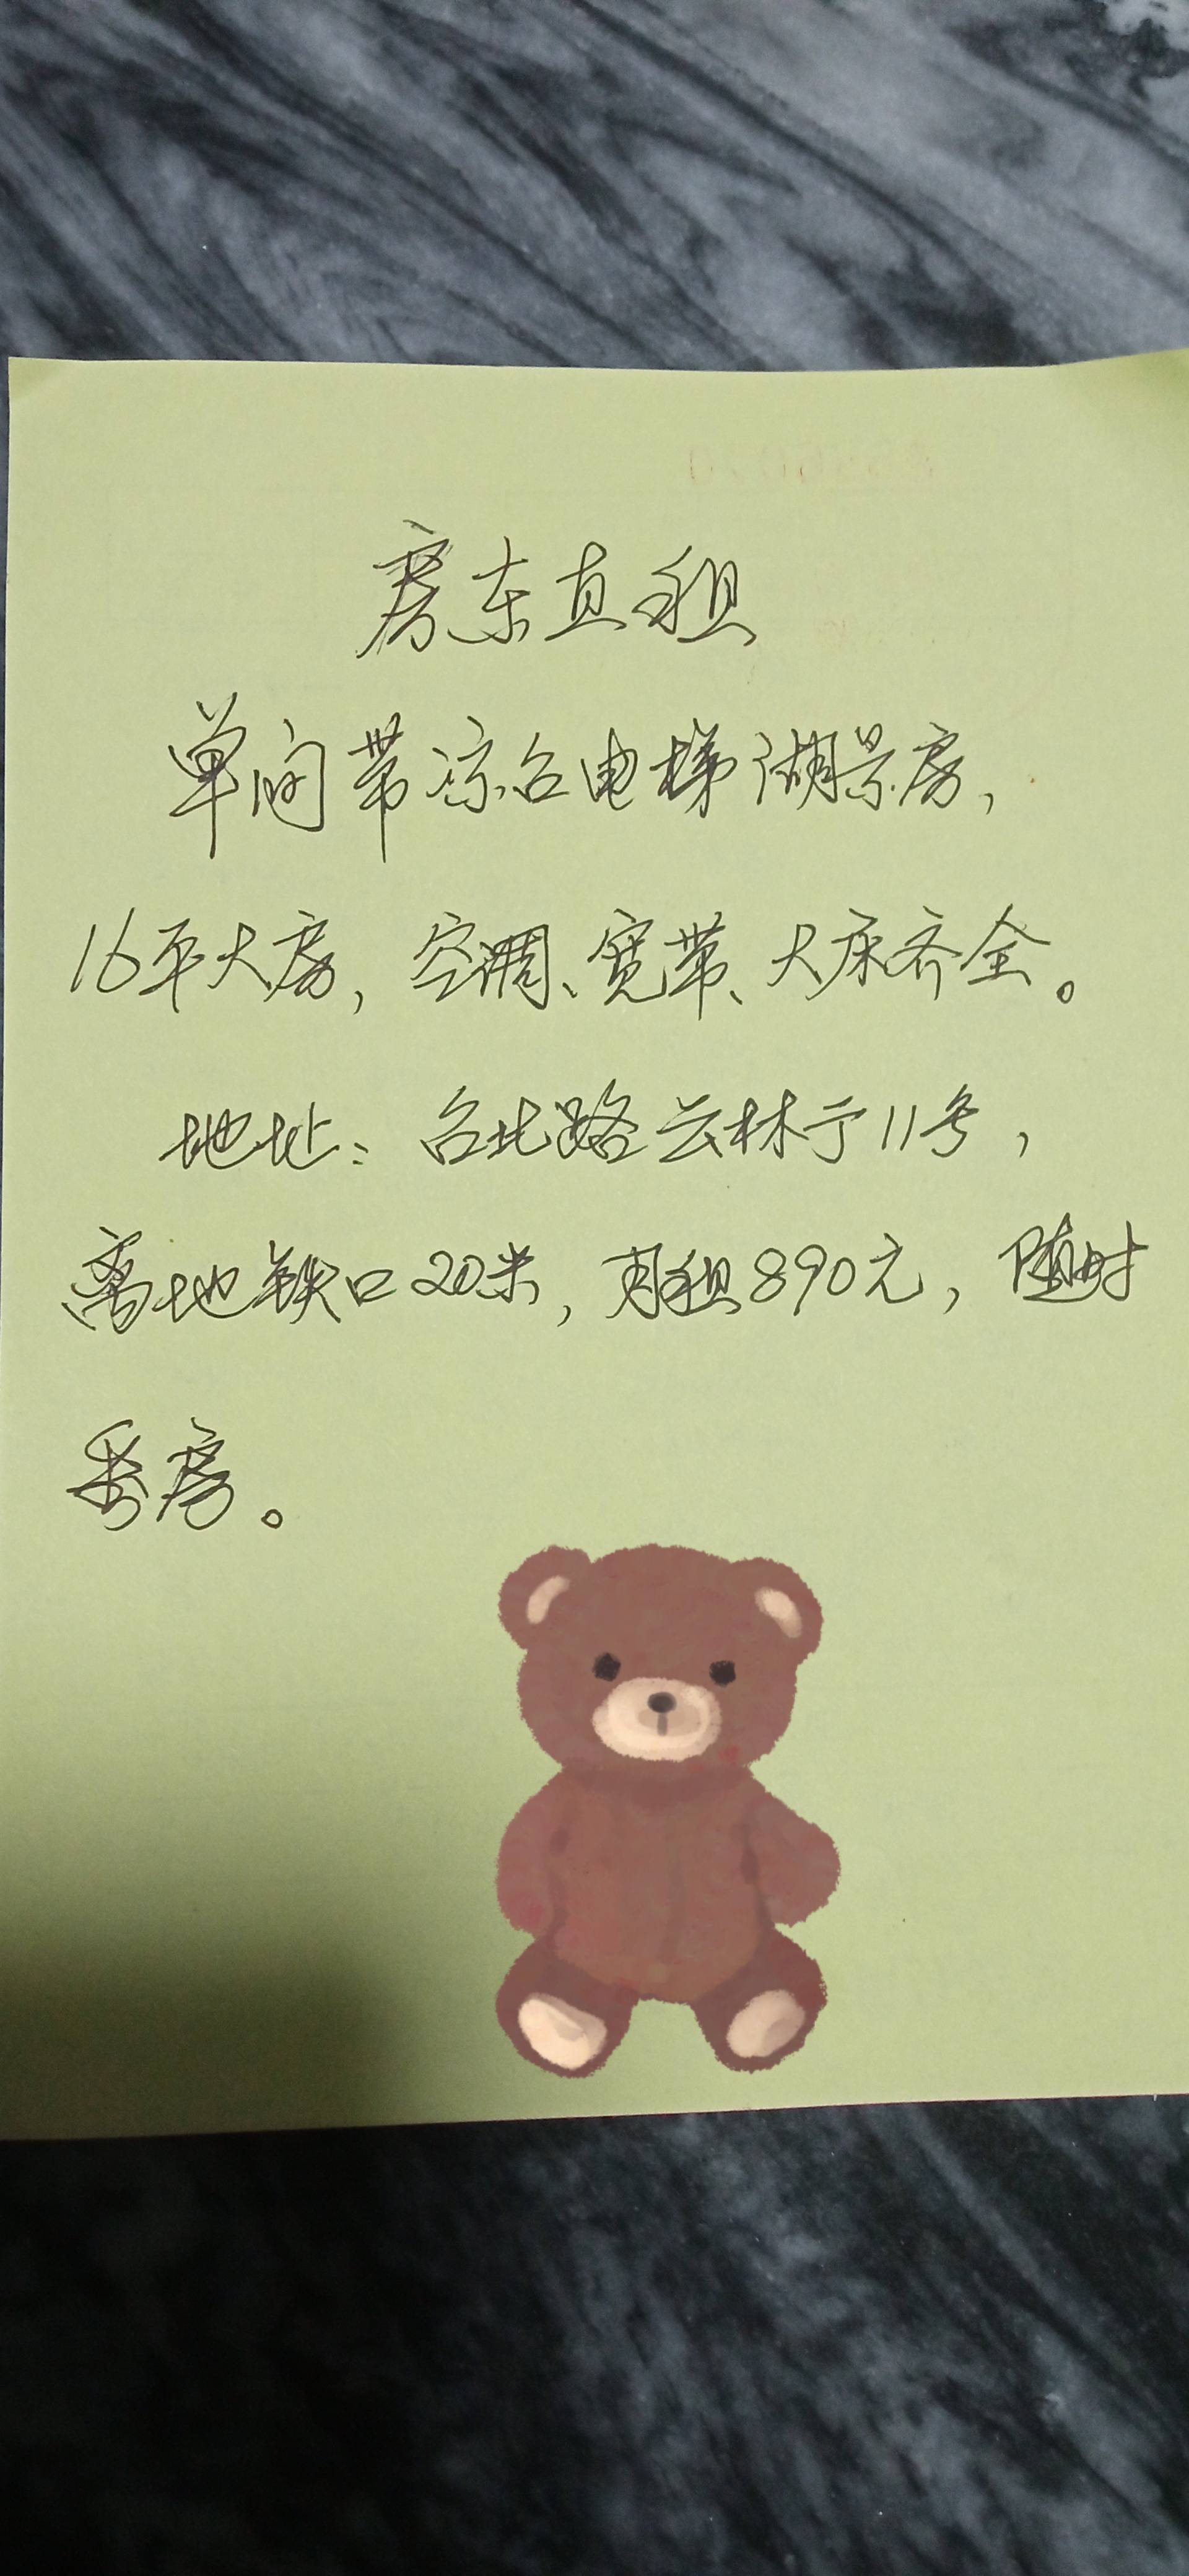 房东直租
单间带凉台电梯湖景房，
16平大房，空调、宽带、大床齐全。
地址：台北路云林于11号，
离地铁口20米，月租890元，随时
看房。